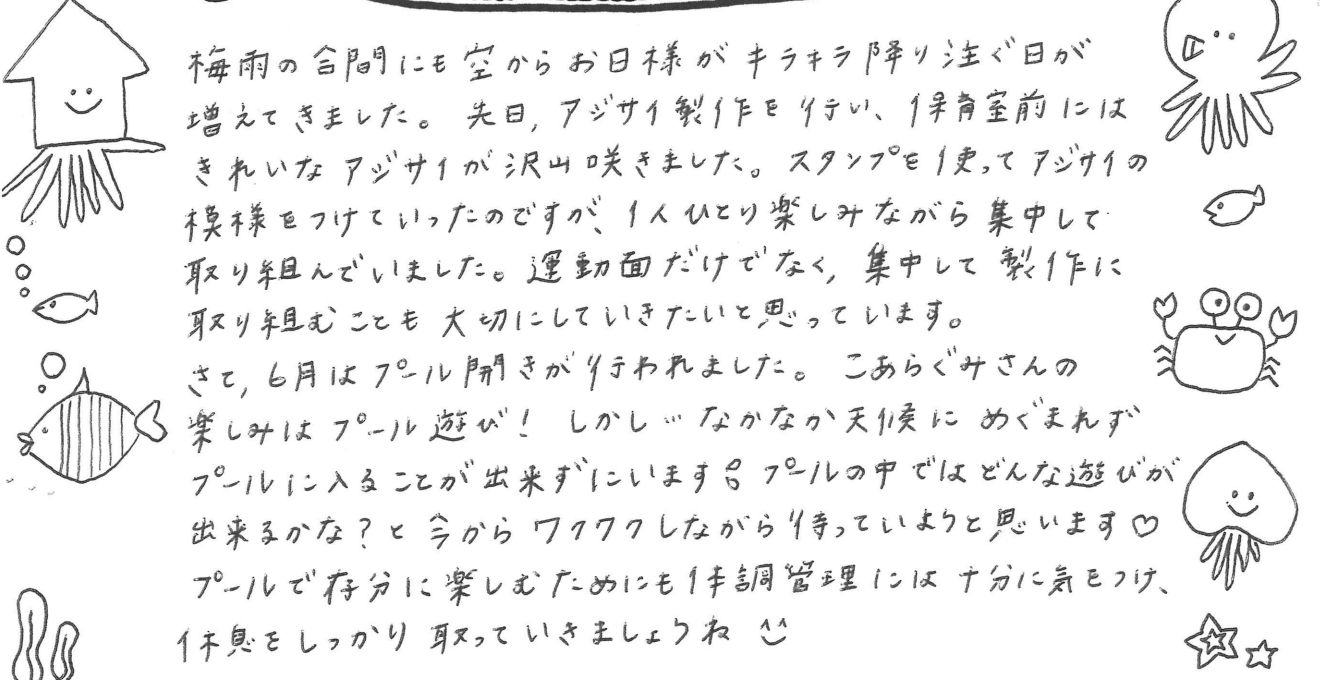 梅雨の合間にも空からお日様がキラキラ降り注ぐ日が
増えてきました。先日、アジサイ製作を行い、保育室前には
きれいなアジサイが沢山咲きました。スタンプを使ってアジサイの
模様をつけていったのですが、1人ひとり楽しみながら集中して
取り組んでいました。運動面だけでなく、集中して製作に
取り組むことも大切にしていきたいと思っています。
さて、6月はプール開きが行われました。こあらぐみさんの
楽しみはプール遊び!しかし…なかなか天候にめぐまれず
プールに入ることが出来ずにいます。プールの中ではどんな遊びが
出来るかな?と今からワクワクしながら待っていようと思います♡
プールで存分に楽しむためにも体調管理には十分に気をつけ、
休息をしっかり取っていきましょうね